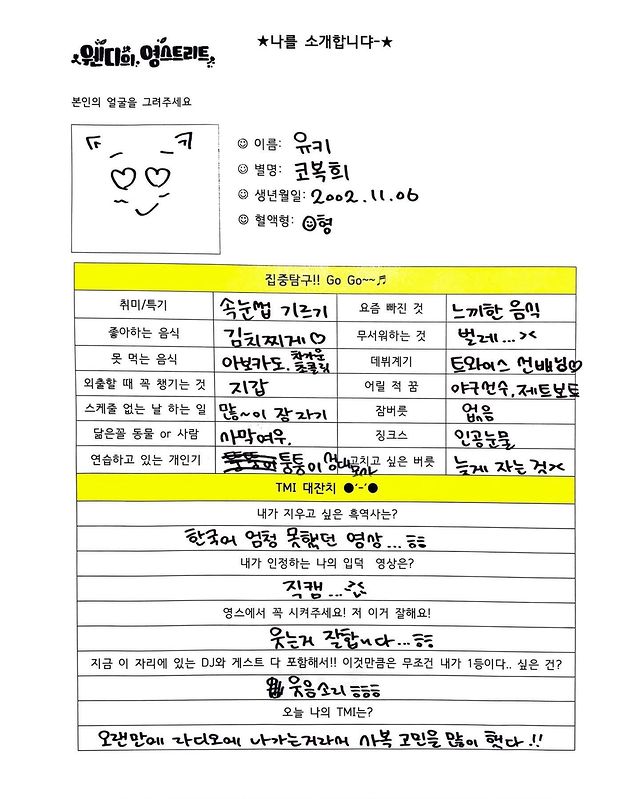 ★나를 소개합니댜-★
웬디의 영스트리트
본인의 얼굴을 그려주세요
☺ 이름: 유키
☺ 별명: 코복희
☺ 생년월일: 2002.11.06
☺ 혈액형: O형
집중탐구!! Go Go~~♬
취미/특기 속눈썹 기르기 요즘 빠진 것 느끼한 음식
좋아하는 음식 김치찌게♡ 무서워하는 것 벌레...><
못 먹는 음식 아보카도. 차가운 초콜릿 데뷔계기 트와이스 선배님♡
외출할 때 꼭 챙기는 것 지갑 어릴 적 꿈 야구선수, 제트보트
스케줄 없는 날 하는 일 많~이 잠자기 잠버릇 없음
닮은꼴 동물 or 사람 사막여우. 징크스 인공눈물
연습하고 있는 개인기 퉁퉁이 성대모사 고치고 싶은 버릇 늦게 자는것><
TMI 대잔치 ●'-'●
내가 지우고 싶은 흑역사는?
한국어 엄청 못했던 영상...ㅎㅎ
내가 인정하는 나의 입덕 영상은?
직캠...
영스에서 꼭 시켜주세요! 저 이거 잘해요!
웃는거 잘합니다...ㅎㅎ
지금 이 자리에 있는 DJ와 게스트 다 포함해서!! 이것만큼은 무조건 내가 1등이다.. 싶은 건?
웃음소리 ㅎㅎㅎ
오늘 나의 TMI는?
오랜만에 라디오에 나가는거라서 사복 고민을 많이 했다.!!